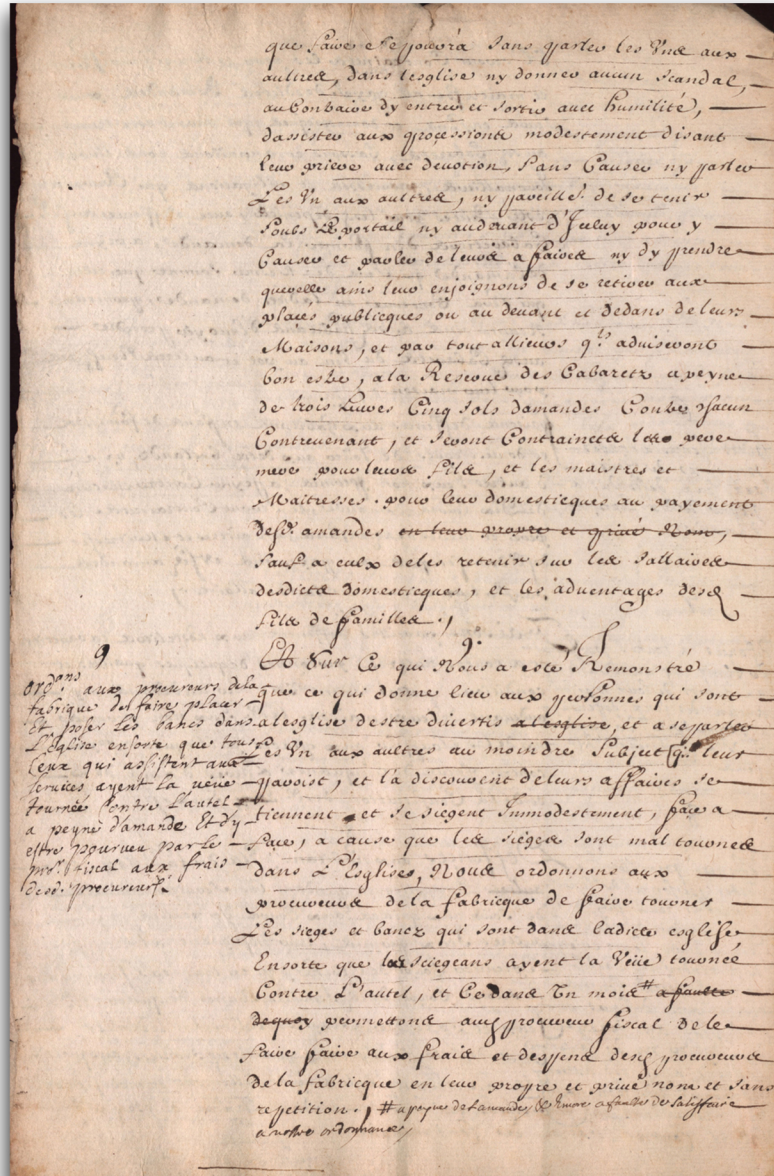 que faire se pouvra sans parler les Uns aux
aultres, dans lesglise ny donner aucun scandal,
au Contraire dy entrer et sortir avec humilité,
dassister aux processions modestement disant
leur priere avec devotion, sans Causer ny parler
Les Un aux aultres, ny pareille.t de se tenir
soubs Le portail ny audevant d'Iceluy pour y
Causer et parler de leurs affaires ny dy prendre
querelle ains leur enjoignons de se retirer aux
places publicques ou au devant et dedans de leurs
Maisons, et par tout allieurs qls adviseront
bon estre, a la Reserve des Cabaretz a peyne
de trois Livres Cinq sols damandes Contre chacun
Contrevenant, et seront Contrainctes les pere
mere pour leurs fils, et les maistres et
Maitresses. pour leur domesticques au payement
desd. amandes en leur propre et privé Nom,
sauf a eulx de les retenir sur les sallaires
desdicts domesticques, et les adventages desd
fils de familles.,
9.
Et Sur Ce qui Nous a esté Remonstré
que ce qui donne lieu aux personnes qui sont
a lesglise destre divertis a lesglise, et a se parler
Les Un aux aultres au moindre Subject q. leur
paroist, et là discouvrent de leurs affaires se
tiennent et se siegent Immodestement, face a
face, a cause que les sieges sont mal tournes
dans L'Esglises, Nous ordonnons aux
procureurs de la fabricque de faire tourner
Les sieges et bancz qui sont dans ladicte esglise
Ensorte que les sciegeans ayent la Veüe tournée
Contre L'autel, et Ce dans Un mois # a faulte
de quoy permettons au procureur fiscal de le
faire faire aux frais et despens desd procureurs
de la fabricque en leur propre et privé nom et sans
repetition., # a peyne de Lamande, a faulte de satisfaire
a nostre ordonnance,
9
ordons aux procureurs de la
fabrique de faire placer
Et poser les bancs dans
L'Eglise ensorte que tous
Ceux qui assistent aux
services ayent la veüe
tournée Contre L'autel
a peyne d'amande Et d'y
estre pourveu par le
pror. fiscal aux frais
desd. procureurs.